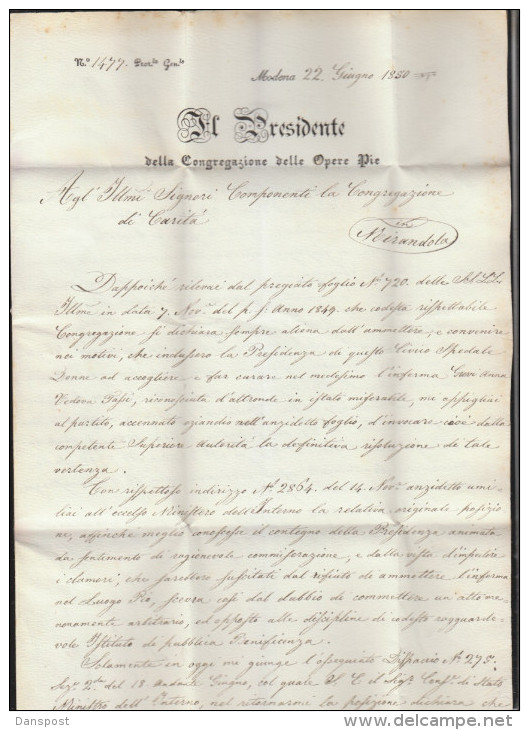 N.º 1477. Prot.lo Gen.le
Modena 22. Giugno 1850
Il Presidente
della Congregazione delle Opere Pie
Agl' Illmi Signori Componenti la Congregazione
di Carità
in
Mirandola
Dappoichè rilevai dal pregiato foglio Nº. 720. delle
Illme in data 7. Nov.e del p. p. Anno 1849. che codesta rispettabile
Congregazione si dichiara sempre aliena dall'ammettere, e convenire
nei motivi, che indussero la Presidenza di questo Civico Spedale
Donne ad accogliere e far curare nel medesimo l'inferma Anna
Vedova riconosciuta d'altronde in istato miserabile, mi appigliai
al partito, accennato eziandio nell'anzidetto foglio, d'invocare cioè dalla
competente Superiore autorità la definitiva risoluzione di tale
vertenza.
Con rispettoso indirizzo Nº. 2864. del 14. Nov.e anzidetto umi-
liai all'eccelso Ministero dell'Interno la relativa originale posizio-
ne, affinchè meglio conoscesse il contegno della Presidenza animata
da sentimento di ragionevole commiserazione, e dalla vista d'impedire
i clamori, che sarebbero suscitati dal rifiuto di ammettere l'inferma
nel Luogo Pio, scevra così dal dubbio di commettere un'atto me-
nonamente arbitrario, ed opposto alle discipline di codesto ragguarde-
vole Istituto di pubblica Beneficenza.
Solamente in oggi mi giunge l'ossequiato Dispaccio Nº. 275.
Sez. 2.da del 18. andante Giugno, col quale S. E. il Sig.r Cons.re di Stato
Ministro dell'Interno, nel ritornarmi la posizione dichiara che
Danspost
www.delcampe.net